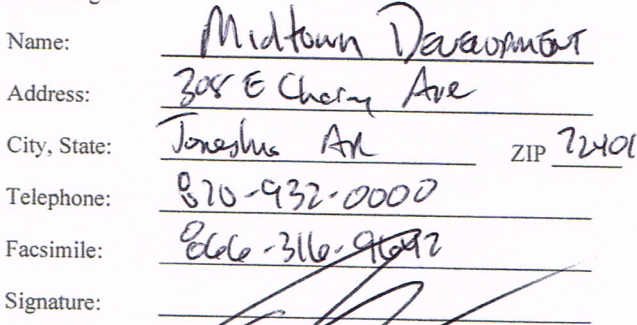 Name: Midtown Development
Address: 308 E Cherry Ave
City, State: Jonesboro AR ZIP 72401
Telephone: 870-932-0000
Facsimile: 866-316-9692
Signature: